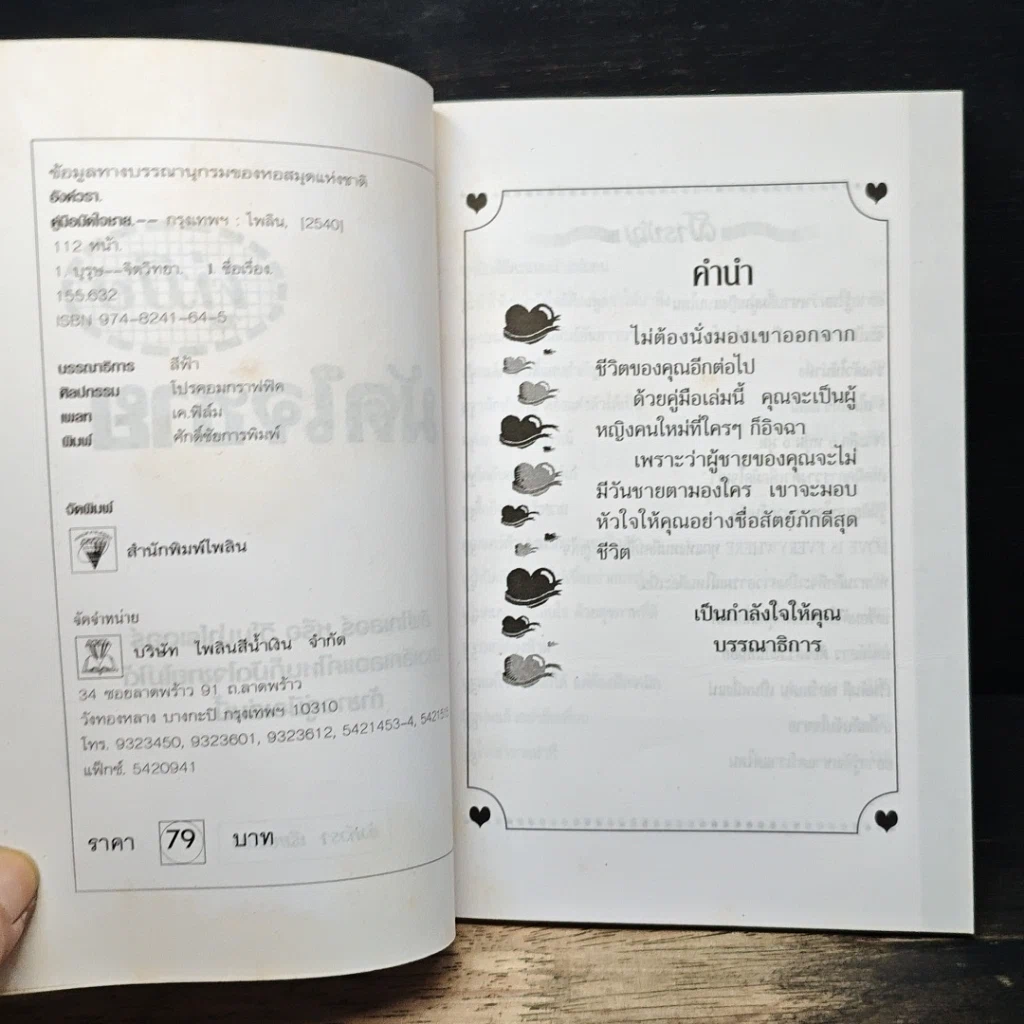 ข้อมูลทางบรรณานุกรมของหอสมุดแห่งชาติ
อังศ์วรา.
คู่มือมัดใจชาย.-- กรุงเทพฯ : ไพลิน, [2540]
112 หน้า.
1. บุรุษ--จิตวิทยา. I. ชื่อเรื่อง.
155.632
ISBN 974-8241-64-5
บรรณาธิการ สีฟ้า
ศิลปกรรม โปรคอมกราฟฟิค
เพลท เค.ฟิล์ม
พิมพ์ ศักดิ์ชัยการพิมพ์
จัดพิมพ์
สำนักพิมพ์ไพลิน
จัดจำหน่าย
บริษัท ไพลินสีน้ำเงิน จำกัด
34 ซอยลาดพร้าว 91 ถ.ลาดพร้าว
วังทองหลาง บางกะปิ กรุงเทพฯ 10310
โทร. 9323450, 9323601, 9323612, 5421453-4,
แฟ็กซ์. 5420941
ราคา 79 บาท
คำนำ
ไม่ต้องนั่งมองเขาออกจาก
ชีวิตของคุณอีกต่อไป
ด้วยคู่มือเล่มนี้ คุณจะเป็นผู้
หญิงคนใหม่ที่ใครๆ ก็อิจฉา
เพราะว่าผู้ชายของคุณจะไม่
มีวันชายตามองใคร เขาจะมอบ
หัวใจให้คุณอย่างซื่อสัตย์ภักดีสุด
ชีวิต
เป็นกำลังใจให้คุณ
บรรณาธิการ